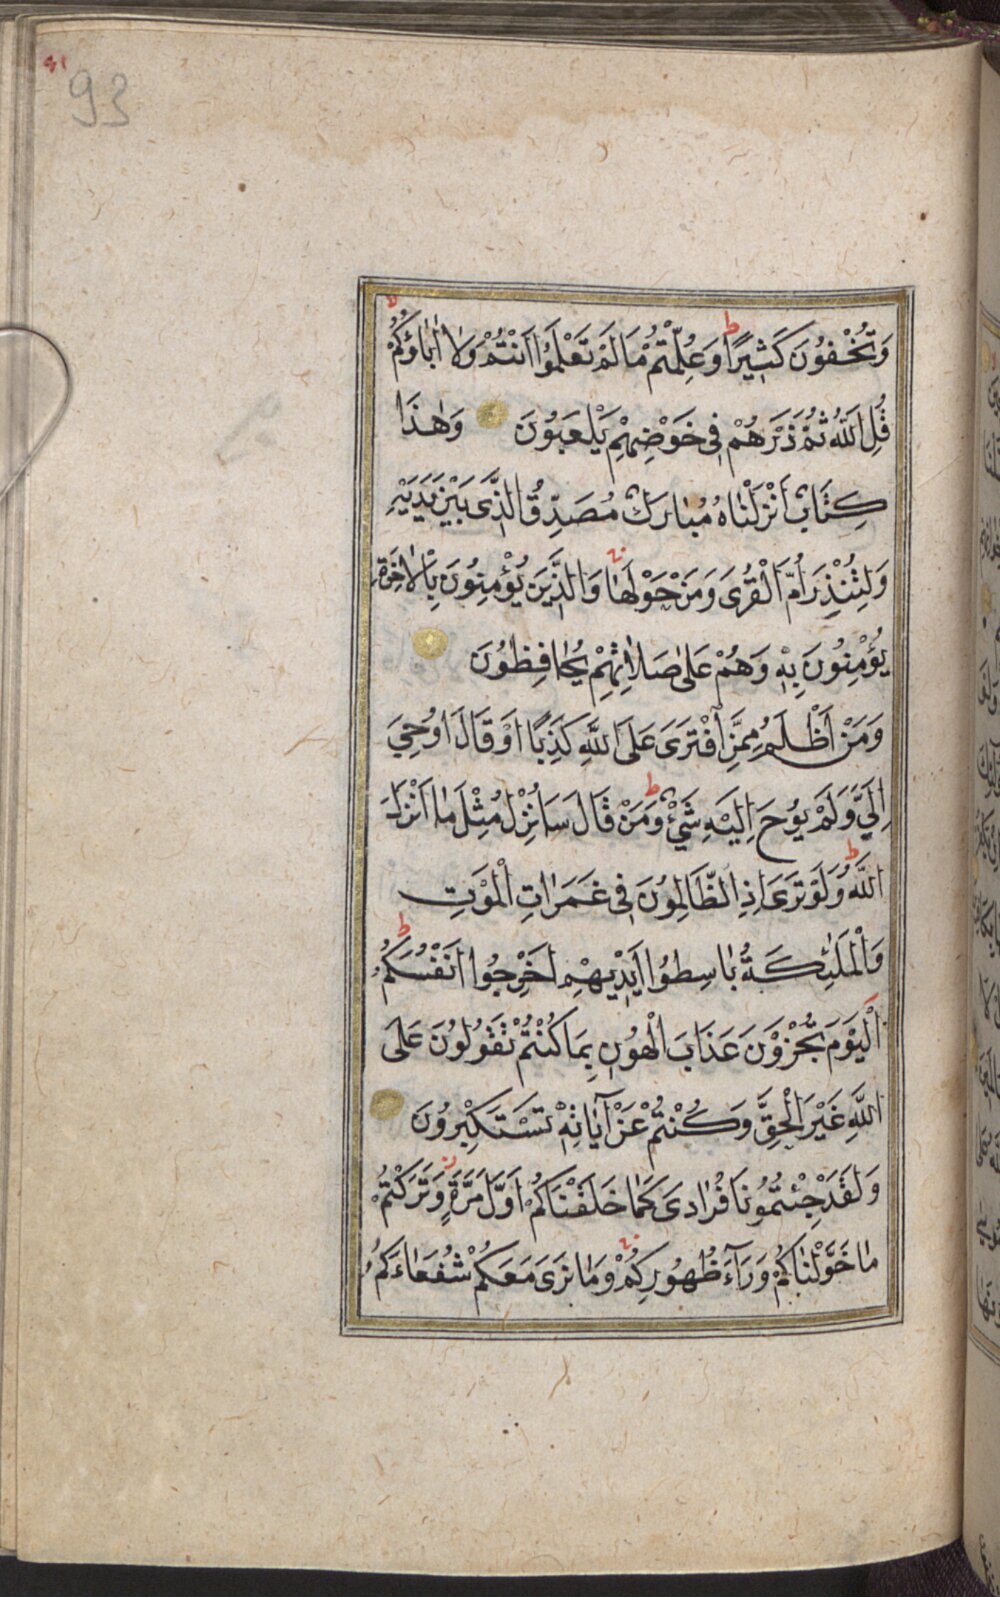 93
وَتُخْفُونَ كَثِيرًا وَعُلِّمْتُمْ مَا لَمْ تَعْلَمُوا اَنْتُمْ وَلَا اٰبَاؤُكُمْ
قُلِ اللّٰهُ ثُمَّ ذَرْهُمْ فِى خَوْضِهِمْ يَلْعَبُونَ وَهٰذَا
كِتَابٌ اَنْزَلْنَاهُ مُبَارَكٌ مُصَدِّقُ الَّذِى بَيْنَ يَدَيْهِ
وَلِتُنْذِرَ اُمَّ الْقُرٰى وَمَنْ حَوْلَهَا وَالَّذِينَ يُؤْمِنُونَ بِالْاٰخِرَةِ
يُؤْمِنُونَ بِهِ وَهُمْ عَلٰى صَلَاتِهِمْ يُحَافِظُونَ
وَمَنْ اَظْلَمُ مِمَّنِ افْتَرٰى عَلَى اللّٰهِ كَذِبًا اَوْ قَالَ اُوحِيَ
اِلَيَّ وَلَمْ يُوحَ اِلَيْهِ شَيْءٌ وَمَنْ قَالَ سَاُنْزِلُ مِثْلَ مَا اَنْزَلَ
اللّٰهُ وَلَوْ تَرٰى اِذِ الظَّالِمُونَ فِى غَمَرَاتِ الْمَوْتِ
وَالْمَلٰئِكَةُ بَاسِطُوا اَيْدِيهِمْ اَخْرِجُوا اَنْفُسَكُمُ
الْيَوْمَ تُجْزَوْنَ عَذَابَ الْهُونِ بِمَا كُنْتُمْ تَقُولُونَ عَلَى
اللّٰهِ غَيْرَ الْحَقِّ وَكُنْتُمْ عَنْ اٰيَاتِهِ تَسْتَكْبِرُونَ
وَلَقَدْ جِئْتُمُونَا فُرَادٰى كَمَا خَلَقْنَاكُمْ اَوَّلَ مَرَّةٍ وَتَرَكْتُمْ
مَا خَوَّلْنَاكُمْ وَرَآءَ ظُهُورِكُمْ وَمَا نَرٰى مَعَكُمْ شُفَعَاءَكُمُ